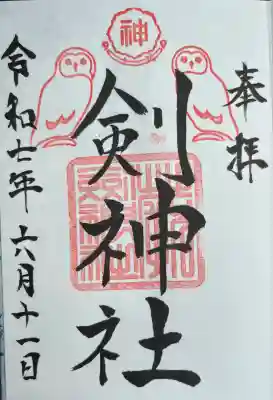 奉拝
神
剣神社
令和七年六月十一日